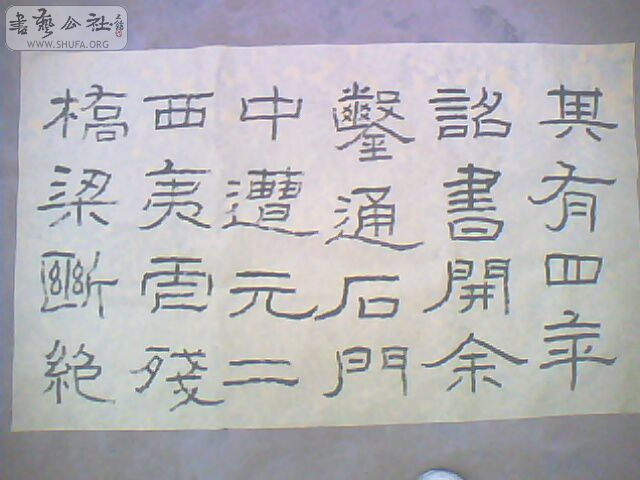 書藝公社
WWW.SHUFA.ORG
其有四年
詔書開余
鑿通石門
中遭元二
西夷虐殘
橋梁斷絶